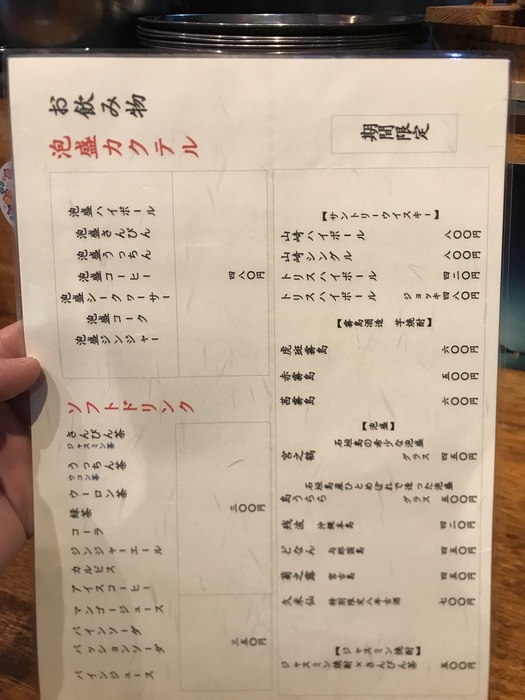 お飲み物
泡盛カクテル
泡盛ハイボール
泡盛さんぴん
泡盛うっちん
泡盛コーヒー 四八〇円
泡盛シークヮーサー
泡盛コーク
泡盛ジンジャー
ソフトドリンク
さんぴん茶
ジャスミン茶
うっちん茶
ウコン茶
ウーロン茶
緑茶 三〇〇円
コーラ
ジンジャーエール
カルピス
アイスコーヒー
マンゴージュース
パインソーダ
パッションソーダ 三五〇円
パインジュース
期間限定
【サントリーウイスキー】
山崎ハイボール 八〇〇円
山崎シングル 八〇〇円
トリスハイボール 四二〇円
トリスハイボール ジョッキ 四八〇円
【霧島酒造 芋焼酎】
虎斑霧島 六〇〇円
赤霧島 五〇〇円
茜霧島 六〇〇円
【泡盛】
石垣島の希少な泡盛
宮之鶴 グラス 四五〇円
石垣島産ひとめぼれで造った泡盛
島うらら グラス 五〇〇円
残波 沖縄本島 四二〇円
どなん 与那国島 四五〇円
菊之露 宮古島 四五〇円
久米仙 特別限定八年古酒 七〇〇円
【ジャスミン焼酎】
ジャスミン焼酎×さんぴん茶 五〇〇円